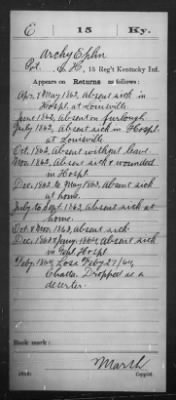 E 15 Ky.
Archy Eplin
Pvt., Co. H, 15 Reg't Kentucky Inf.
Appears on Returns as follows:
Apr. & May 1862, absent sick in
Hospt. at Louisville
June 1862, Absent on furlough
July 1862, Absent sick in Hospt.
at Louisville
Oct. 1862, absent without leave
Nov. 1862, absent sick & wounded
in Hospt.
Dec. 1862 to May 1863, absent sick
at home.
July to Sept. 1863, absent sick at
home.
Oct & Nov. 1863, absent sick
Dec. 1863 & Jany. 1864, absent sick
in Hospt.
Feby. 1864, Loss Feby. 27/64,
Chatta. Dropped as a
deserter.
Book mark:
Marsh
Copyist.